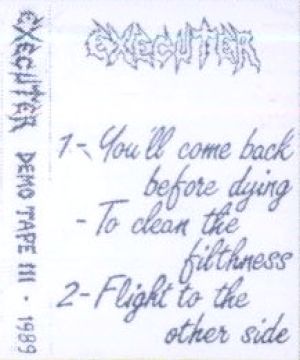 EXECUTER DEMO TAPE III - 1989
EXECUTER
1- You'll come back
before dying
- To clean the
filthness
2- Flight to the
other side